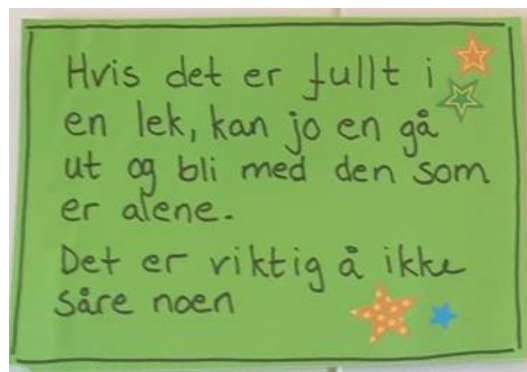 Hvis det er fullt i
en lek, kan jo en gå
ut og bli med den som
er alene.
Det er viktig å ikke
såre noen